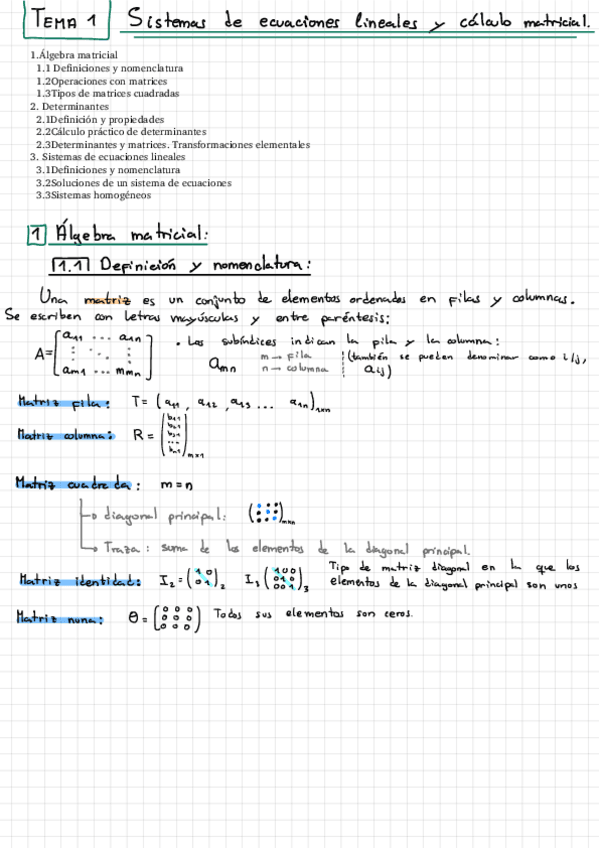 TEMA 1 Sistemas de ecuaciones lineales y cálculo matricial.
1.Álgebra matricial
1.1 Definiciones y nomenclatura
1.2Operaciones con matrices
1.3Tipos de matrices cuadradas
2. Determinantes
2.1Definición y propiedades
2.2Cálculo práctico de determinantes
2.3Determinantes y matrices. Transformaciones elementales
3. Sistemas de ecuaciones lineales
3.1Definiciones y nomenclatura
3.2Soluciones de un sistema de ecuaciones
3.3Sistemas homogéneos
1 Álgebra matricial:
1.1 Definición y nomenclatura:
Una matriz es un conjunto de elementos ordenados en filas y columnas.
Se escriben con letras mayúsculas y entre paréntesis:
A= [a11 ... a1n
⋮ ⋱ ⋮
am1 ... mmn]
• Los subíndices indican la fila y la columna:
amn m → fila (también se pueden denominar como i/j,
n → columna aij)
Matriz fila: T= (a11, a12, a13 ... a1n)1xn
Matriz columna: R= (b11
b21
b31
...
bn1)mx1
Matriz cuadrada: m=n
diagonal principal: mxn
Traza: suma de los elementos de la diagonal principal.
Matriz identidad: I2= (1 0
0 1)2 I3 (1 0 0
0 1 0
0 0 1)3 Tipo de matriz diagonal en la que los
elementos de la diagonal principal son unos
Matriz nuna: Θ= (0 0 0
0 0 0
0 0 0) Todos sus elementos son ceros.